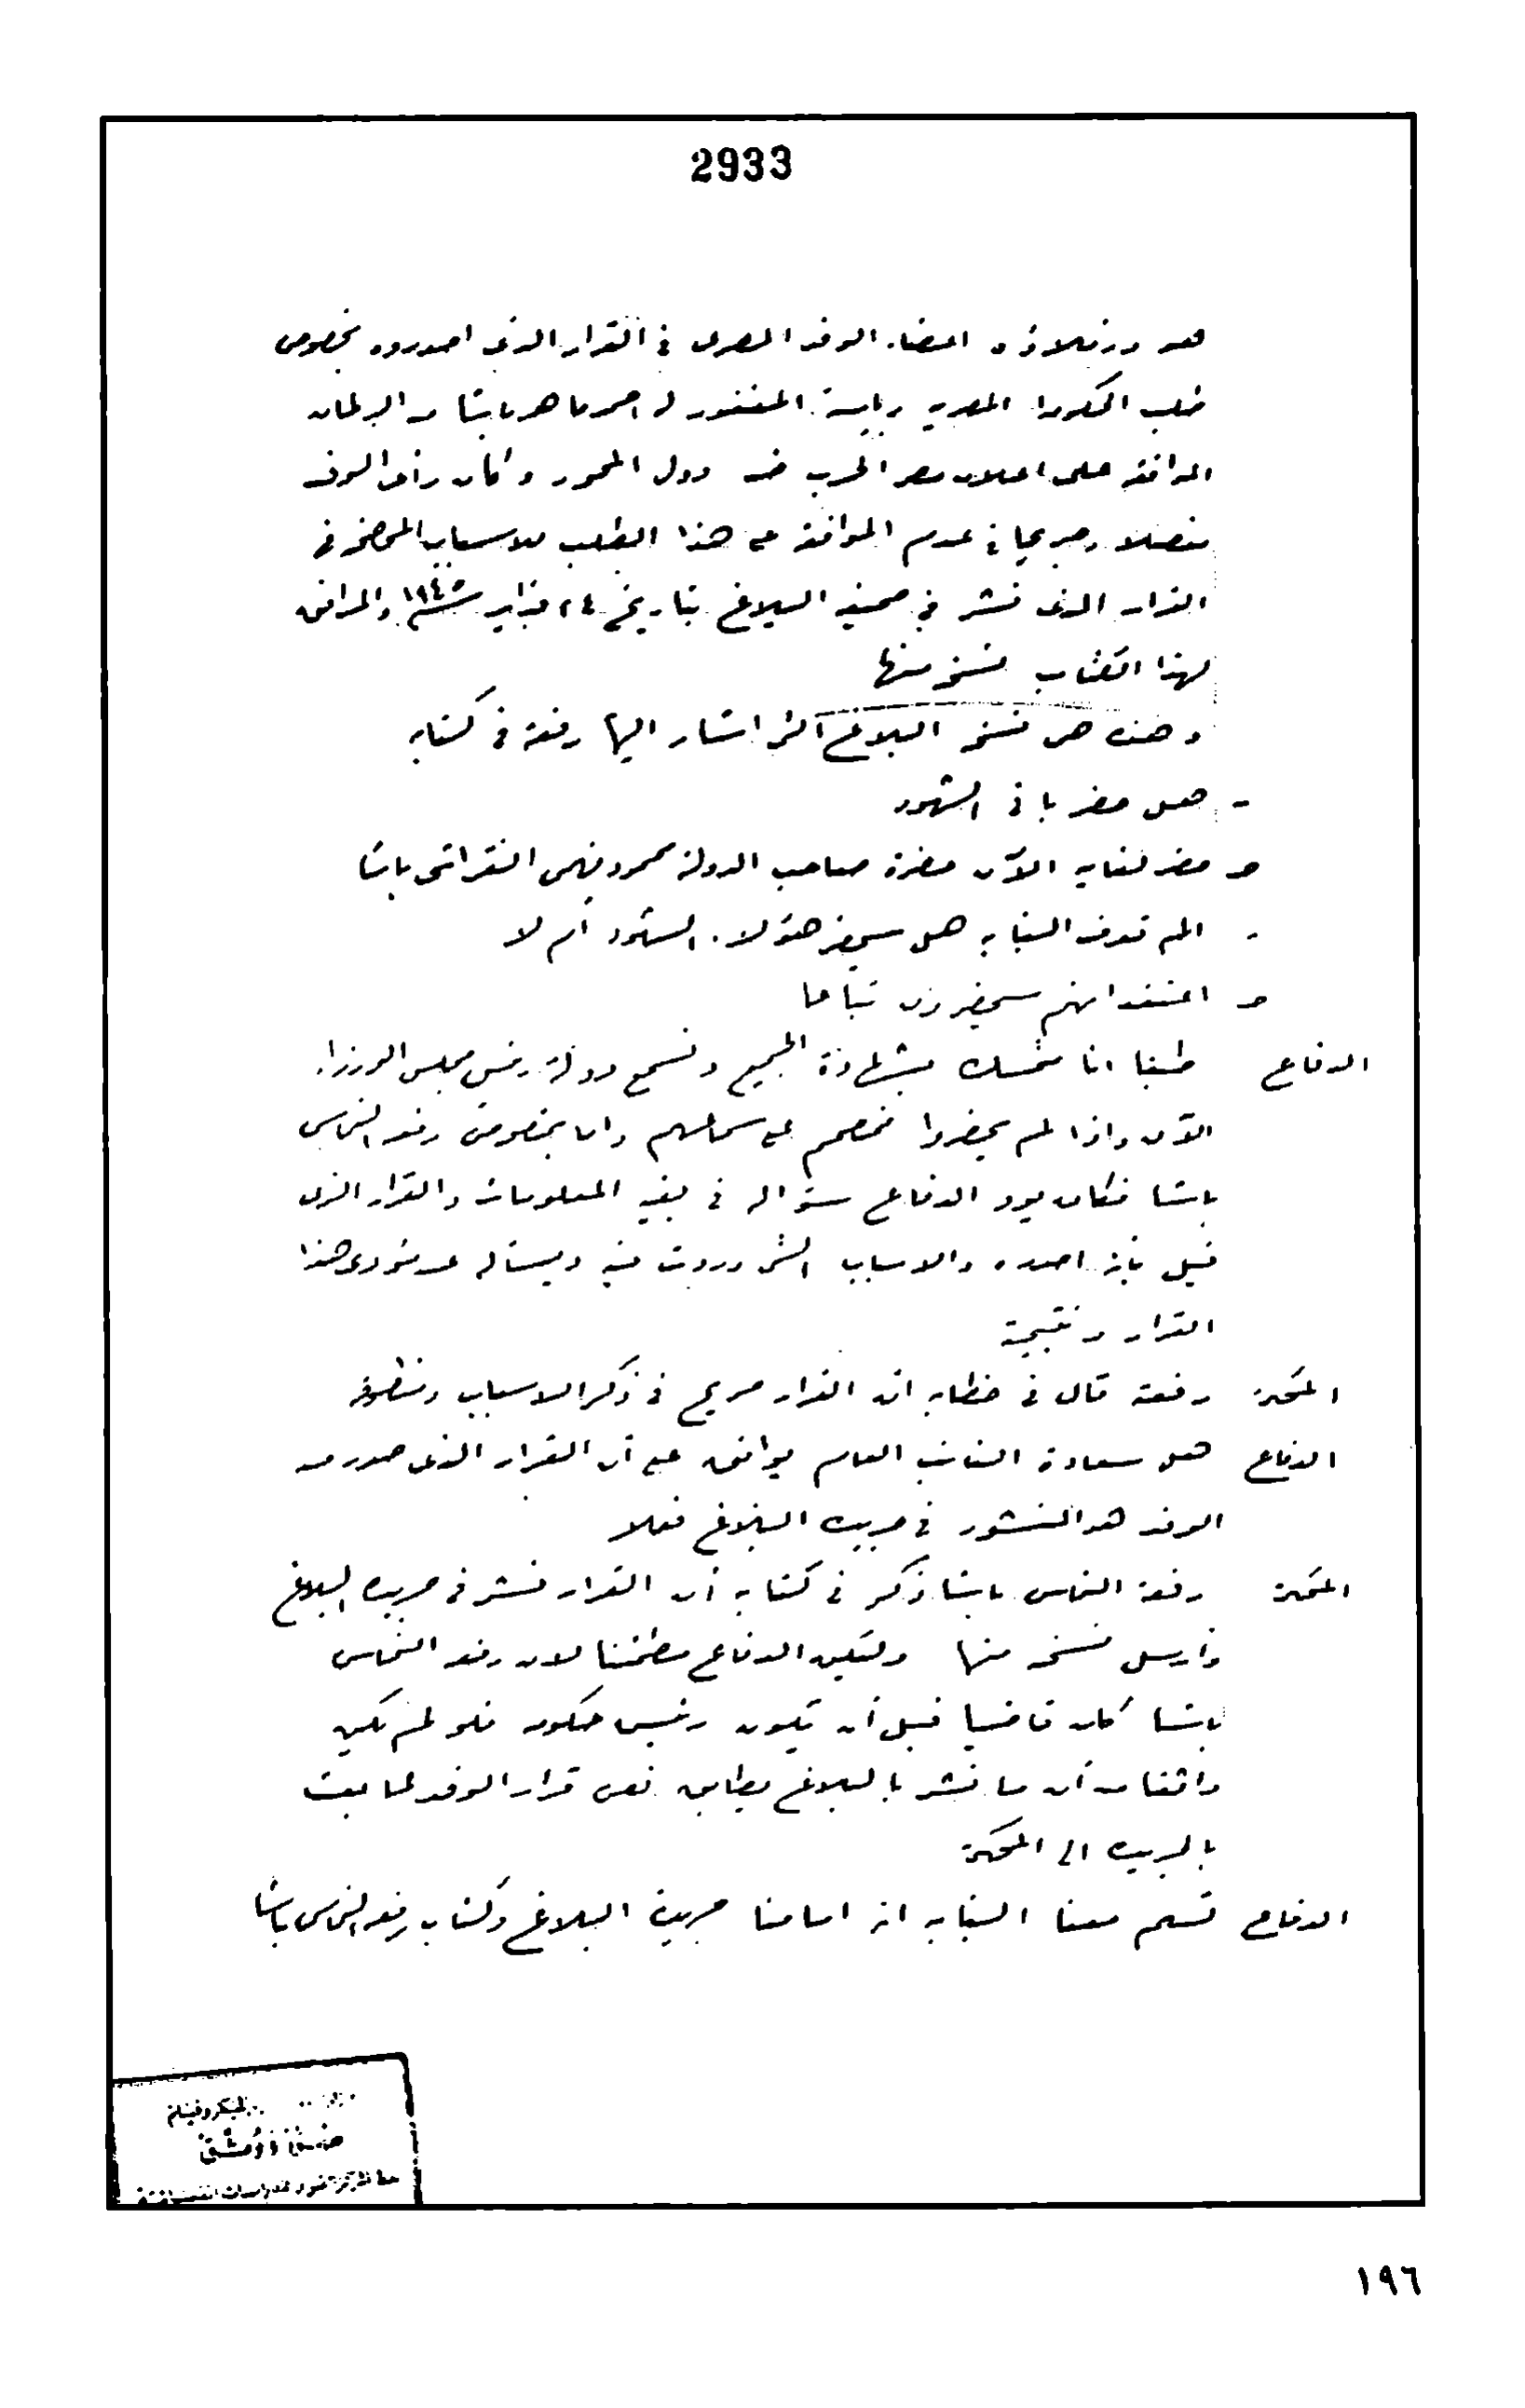 2933
هو وزملاؤه اعضاء الوفد المصرى فى القرار الذى اصدروه بخصوص
طلب الحكومة المصرية برياسة المغفور له احمد ماهر باشا من البرلمان
الموافقة على اعلان مصر الحرب ضد دول المحور وكان رأى الوفد
مفصلا وصريحا فى عدم الموافقة على هذا الطلب للاسباب الموضحة فى
القرار الذى نشر فى صحيفة البلاغ بتاريخ ٢٤ فبراير سنة ١٩٤٥ والمرافق
لهذا الكتاب نسخة منها
وهذه هى نسخة البلاغ التى اشار اليها رفعته فى كتابه
- هل حضر باقى الشهود
حـ حضر لغاية الآن حضرة صاحب الدولة محمود فهمى النقراشى باشا
- الم تعرف النيابة هل سيحضر هؤلاء الشهود أم لا
حـ اعتقد انهم سيحضرون تباعا
الدفاع طبعا انا متمسك بشهادة الجميع ونسمع دولة رئيس مجلس الوزراء
الآن واذا لم يحضروا فنصمم على سماعهم واما بخصوص رفعة النحاس
باشا فكان يود الدفاع سؤاله فى بقية المعلومات والقرار الذى
قيل بأنه اصدره والاسباب التى وردت فيه ويسأله عن مؤدى هذا
القرار ونتيجته
المحكمة رفعته قال فى خطابه ان القرار صريح فى ذكر الاسباب ومنطوقه
الدفاع هل سعادة النائب العام يوافق على أن القرار الذى صدر من
الوفد هو المنشور فى جريدة البلاغ فعلا
المحكمة رفعة النحاس باشا ذكر فى كتابه أن القرار نشر فى جريدة البلاغ
وأرسل نسخة منها وليكن الدفاع مطمئنا لان رفعة النحاس
باشا كان قاضيا قبل أن يكون رئيس حكومة فلو لم يكن
واثقا من أن ما نشر بالبلاغ يطابق نص قرار الوفد لما بعث
بالجريدة الى المحكمة
الدفاع تسلم معنا النيابة ان امامنا جريدة البلاغ وكتاب رفعة النحاس باشا
١٩٦